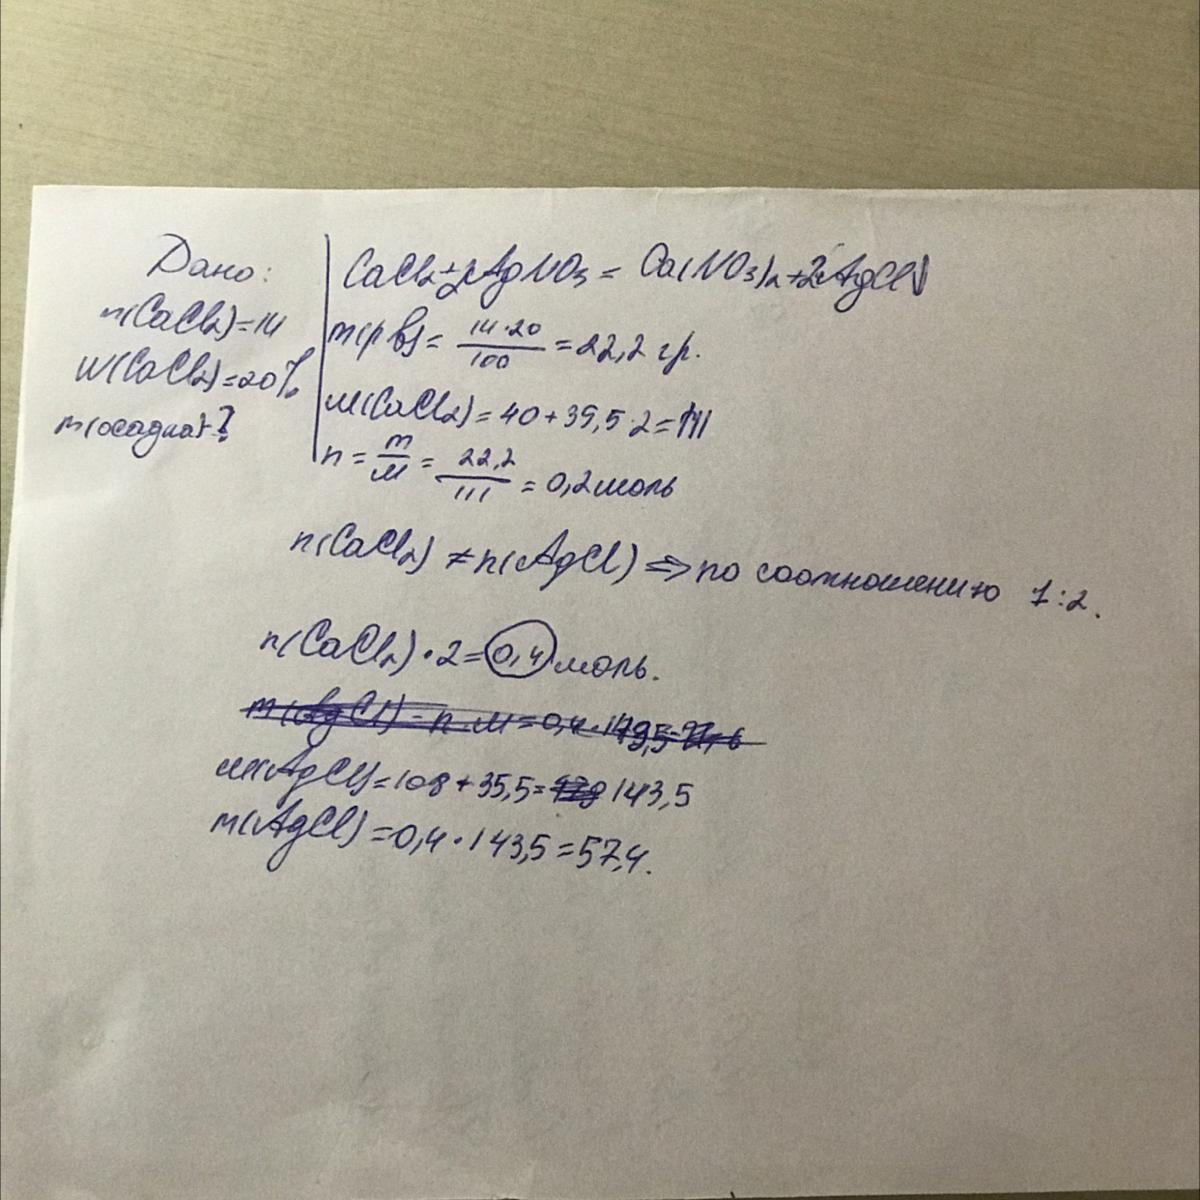 Дано:
m(CaCl₂)=14
W(CaCl₂)=20%
m(осадка)-?
CaCl₂+2AgNO₃ = Ca(NO₃)₂+2AgCl↓
m(р в)= 14·20/100 =22,2 гр.
M(CaCl₂)=40+35,5·2=111
n = m/M = 22,2/111 = 0,2 моль
n(CaCl₂) ≠ n(AgCl) ⇒ по соотношению 1:2.
n(CaCl₂)·2=0,4 моль.
M(AgCl)=108+35,5= 143,5
m(AgCl)=0,4·143,5=57,4.